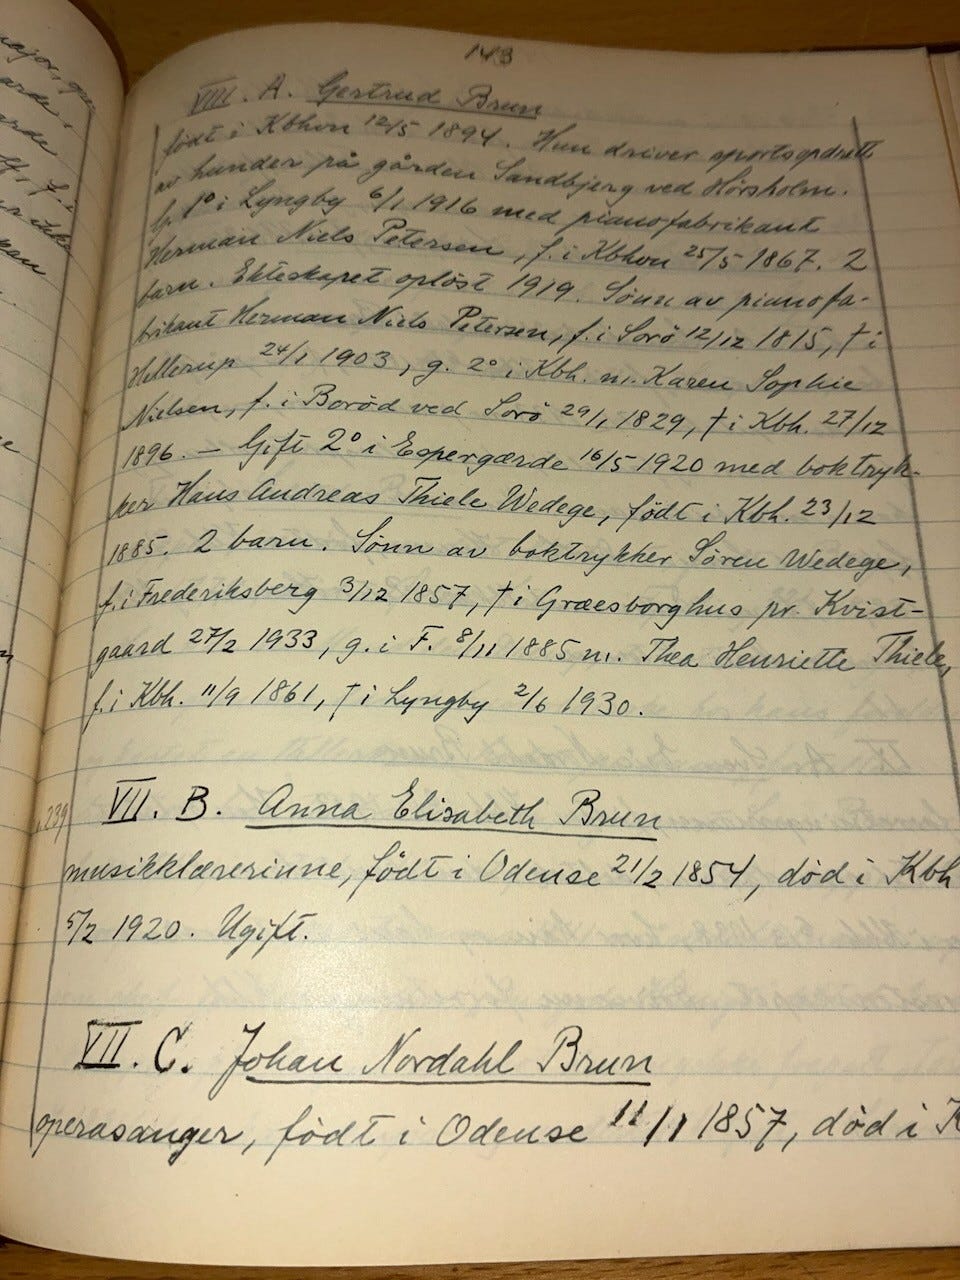 143
VIII. A. Gertrud Brun
født i Kbhvn 12/5 1894. Hun driver sportsopdrett
av hunder på gården Sandbjerg ved Hörsholm.
g. 1° i Lyngby 6/1 1916 med pianofabrikant
Herman Niels Petersen, f. i Kbhvn 25/5 1867. 2
barn. Ekteskapet oplöst 1919. Sönn av pianofa-
brikant Herman Niels Petersen, f. i Sorö 12/12 1815, † i
Hellerup 24/1 1903, g. 2° i Kbh. m. Karen Sophie
Nielsen, f. i Boröd ved Sorö 29/1 1829, † i Kbh. 27/12
1896. — Gift 2° i Espergærde 16/5 1920 med boktryk-
ker Hans Andreas Thiele Wedege, födt i Kbh. 23/12
1885. 2 barn. Sönn av boktrykker Sören Wedege,
f. i Frederiksberg 3/12 1857, † i Græsborghus pr. Kvist-
gaard 27/2 1933, g. i F. 8/11 1885 m. Thea Henriette Thiele,
f. i Kbh. 11/9 1861, † i Lyngby 2/6 1930.
239
VII. B. Anna Elisabeth Brun
musikklærerinne, födt i Odense 21/2 1854, död i Kbh
5/2 1920. Ugift.
VII. C. Johan Nordahl Brun
operasanger, födt i Odense 11/1 1857, död i K